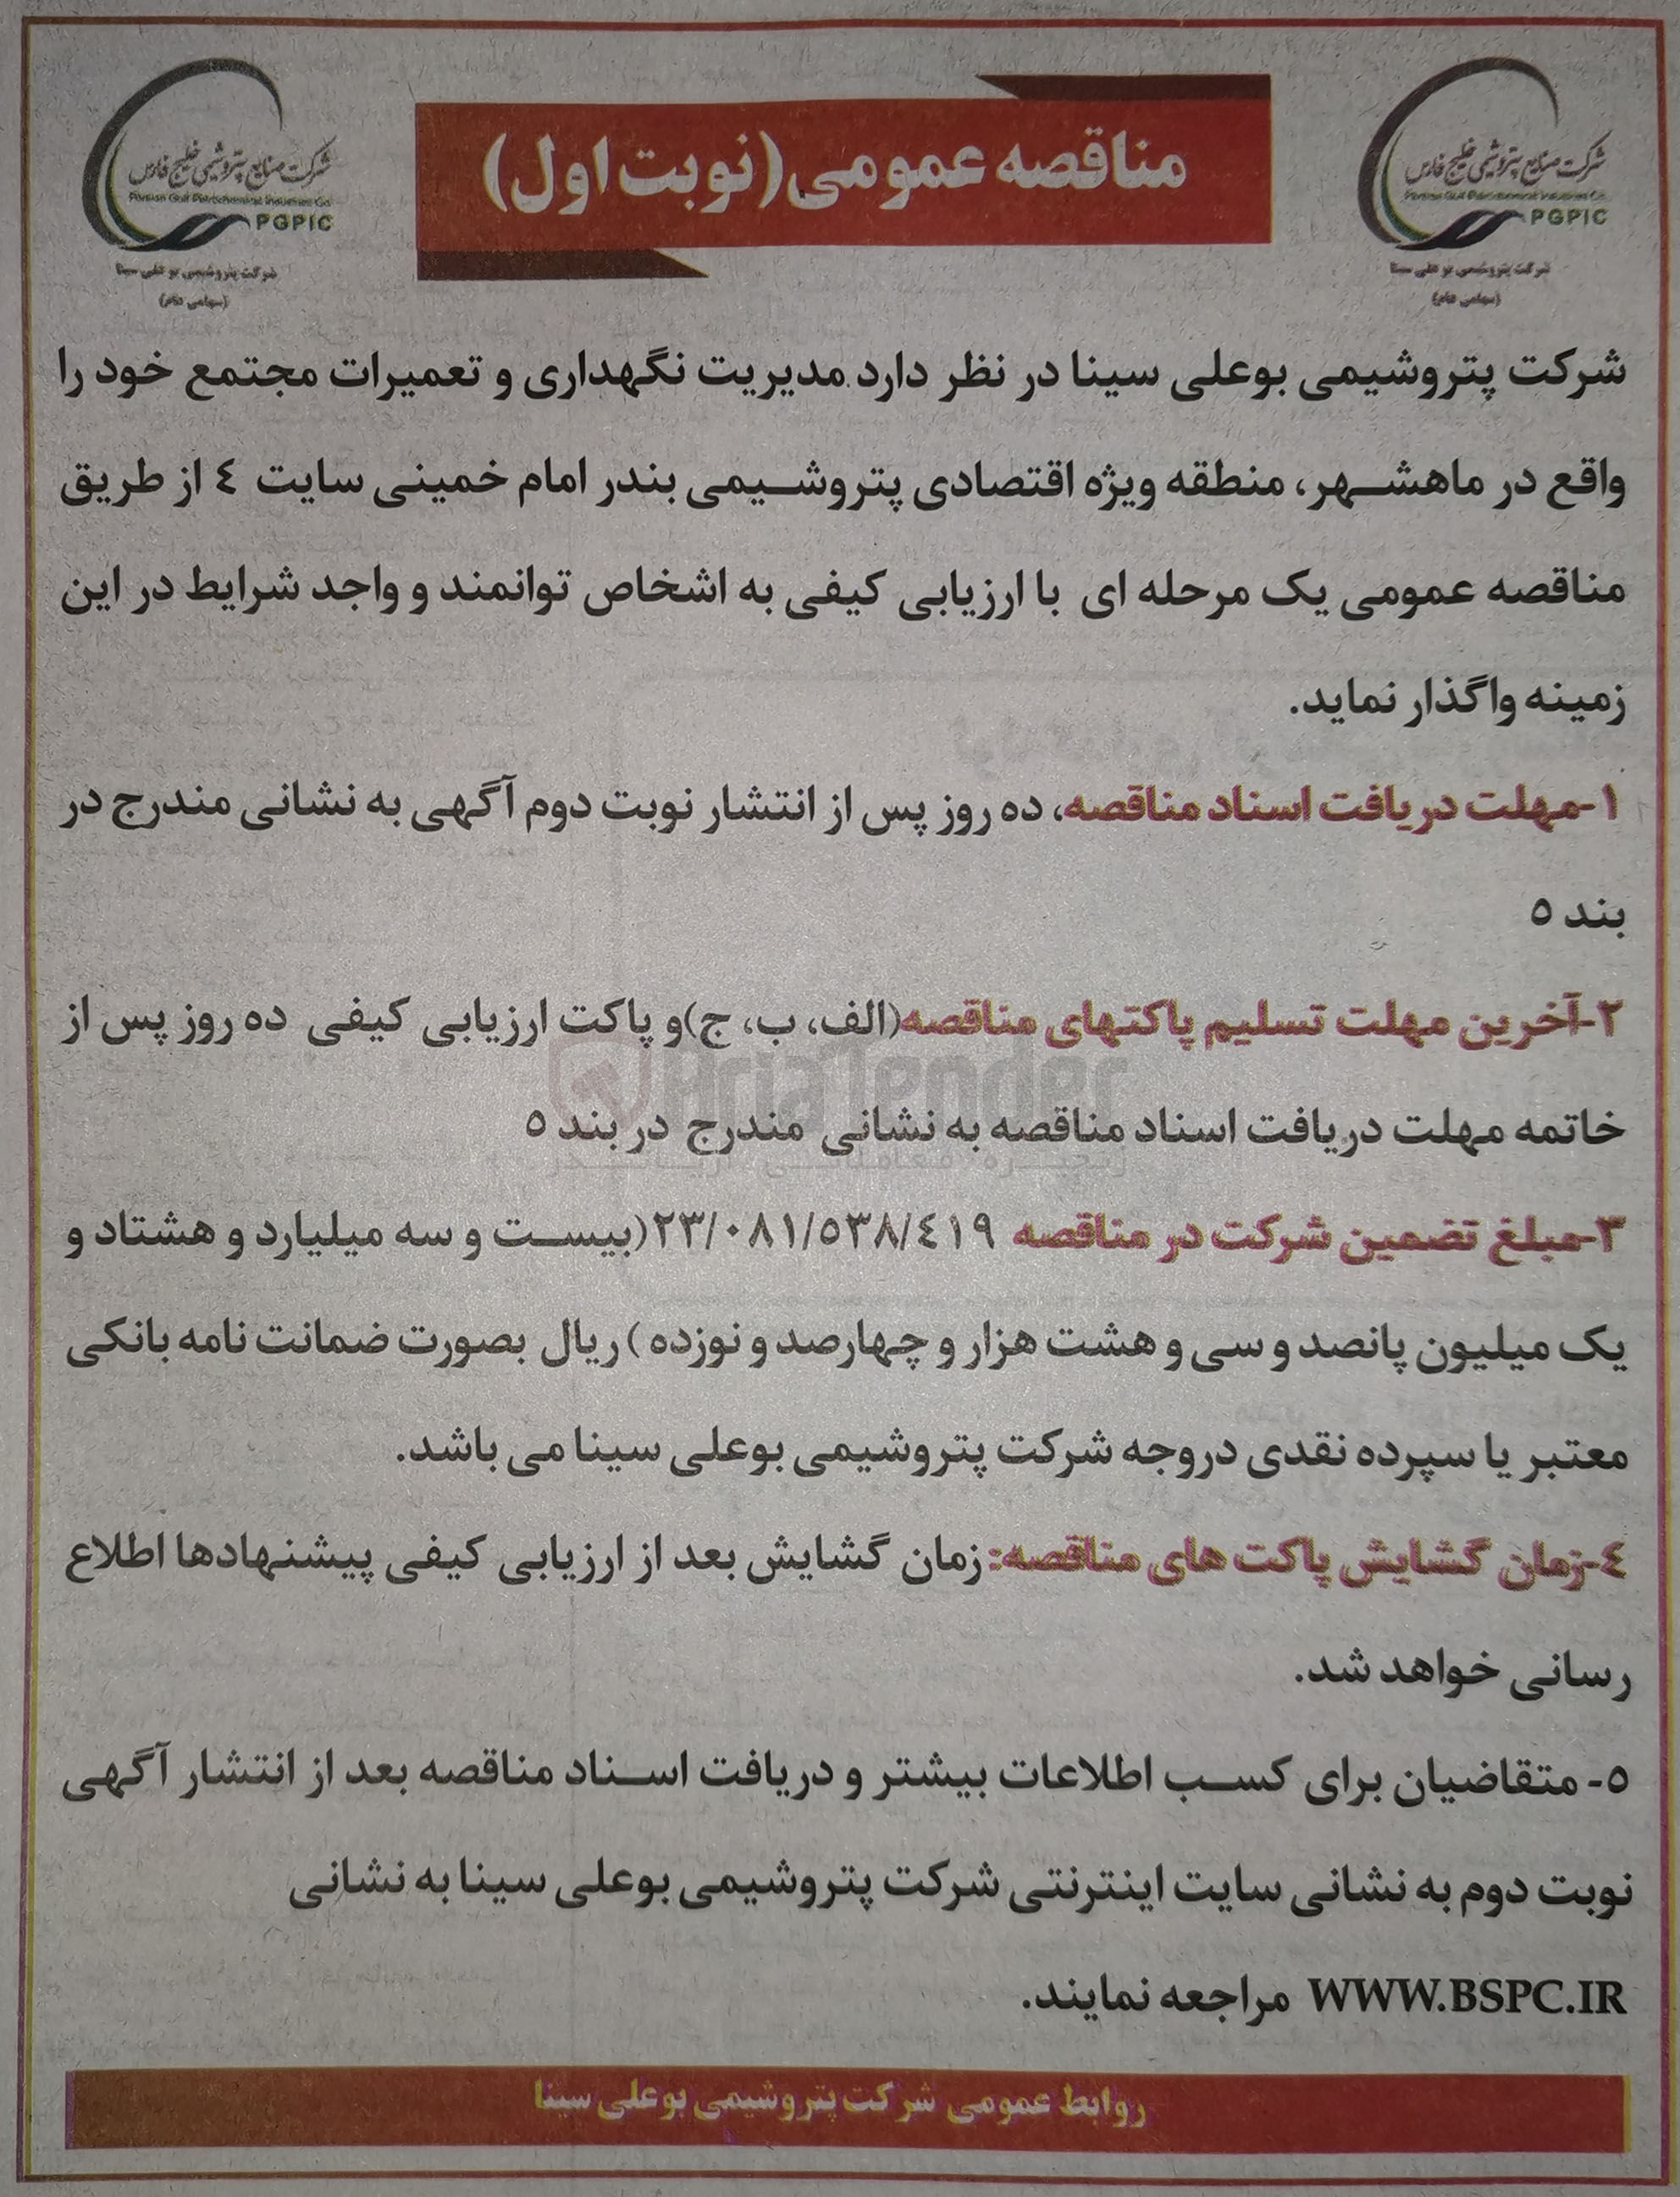 شرکت صنایع پتروشیمی خلیج فارس
Persian Gulf Petrochemical Industries Co.
PGPIC
شرکت پتروشیمی بوعلی سینا
(سهامی عام)
مناقصه عمومی (نوبت اول)
شرکت صنایع پتروشیمی خلیج فارس
Persian Gulf Petrochemical Industries Co.
PGPIC
شرکت پتروشیمی بوعلی سینا
(سهامی عام)
شرکت پتروشیمی بوعلی سینا در نظر دارد مدیریت نگهداری و تعمیرات مجتمع خود را
واقع در ماهشهر، منطقه ویژه اقتصادی پتروشیمی بندر امام خمینی سایت ٤ از طریق
مناقصه عمومی یک مرحله ای با ارزیابی کیفی به اشخاص توانمند و واجد شرایط در این
زمینه واگذار نماید.
١-مهلت دریافت اسناد مناقصه، ده روز پس از انتشار نوبت دوم آگهی به نشانی مندرج در
بند ٥
٢-آخرین مهلت تسلیم پاکتهای مناقصه(الف، ب، ج)و پاکت ارزیابی کیفی ده روز پس از
خاتمه مهلت دریافت اسناد مناقصه به نشانی مندرج در بند ٥
AriaTender
زنجیره معاملاتی آریاتندر
٣-مبلغ تضمین شرکت در مناقصه ٢٣/٠٨١/٥٣٨/٤١٩(بیست و سه میلیارد و هشتاد و
یک میلیون پانصد و سی و هشت هزار و چهارصد و نوزده ) ریال بصورت ضمانت نامه بانکی
معتبر یا سپرده نقدی دروجه شرکت پتروشیمی بوعلی سینا می باشد.
٤-زمان گشایش پاکت های مناقصه: زمان گشایش بعد از ارزیابی کیفی پیشنهادها اطلاع
رسانی خواهد شد.
٥- متقاضیان برای کسب اطلاعات بیشتر و دریافت اسناد مناقصه بعد از انتشار آگهی
نوبت دوم به نشانی سایت اینترنتی شرکت پتروشیمی بوعلی سینا به نشانی
WWW.BSPC.IR مراجعه نمایند.
روابط عمومی شرکت پتروشیمی بوعلی سینا